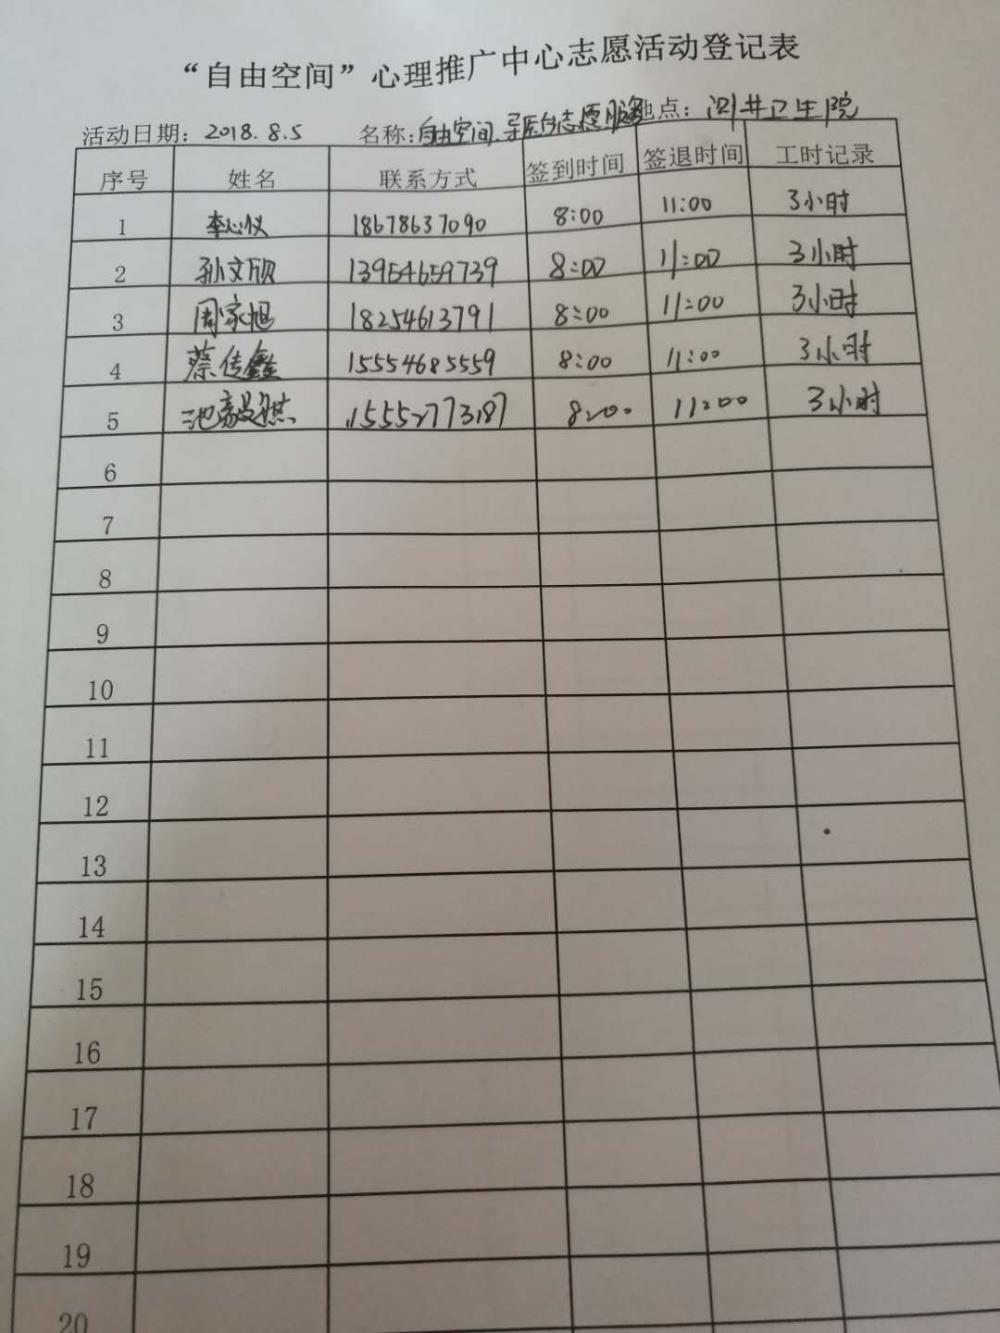 “自由空间”心理推广中心志愿活动登记表
活动日期：2018.8.5 名称：自由空间.导医台志愿服务 地点：井卫生院
序号 姓名 联系方式 签到时间 签退时间 工时记录
1 李心仪 18678637090 8:00 11:00 3小时
2 孙文欣 13954659739 8:00 11:00 3小时
3 周家旭 18254613791 8:00 11:00 3小时
4 蔡传鑫 15554685559 8:00 11:00 3小时
5 池 15552773187 8:00 11:00 3小时
6
7
8
9
10
11
12
13
14
15
16
17
18
19
20